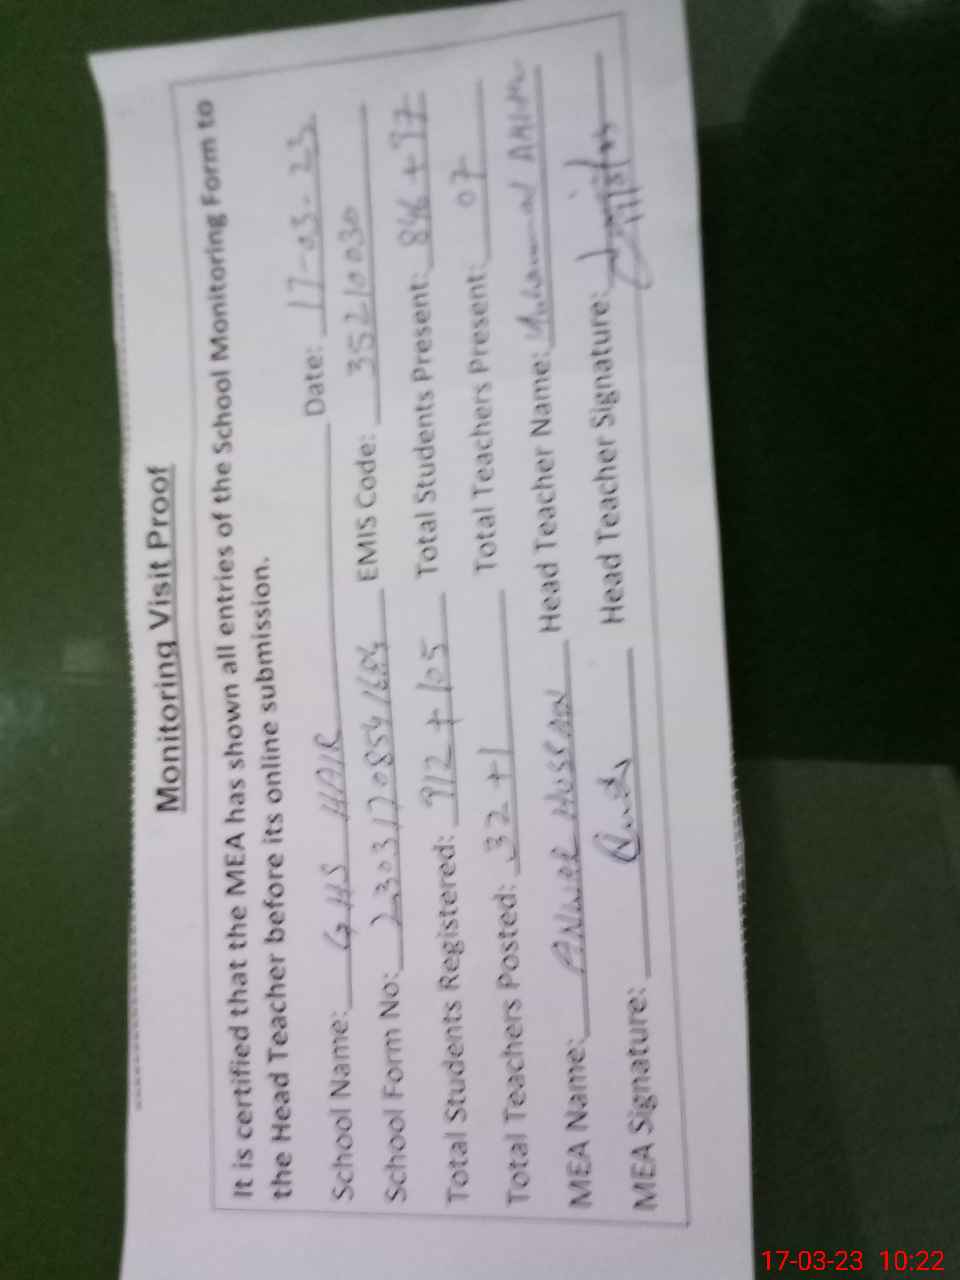 Monitoring Visit Proof
It is certified that the MEA has shown all entries of the School Monitoring Form to
the Head Teacher before its online submission.
School Name: GHS HAIR Date: 17-03-23
School Form No: 23031708541684 EMIS Code: 35210030
Total Students Registered: 912 + 105 Total Students Present: 846 + 97
Total Teachers Posted: 32 + 1 Total Teachers Present: 07
MEA Name: ANWER HUSSAN Head Teacher Name: Muhammad
MEA Signature: Head Teacher Signature:
17-03-23 10:22